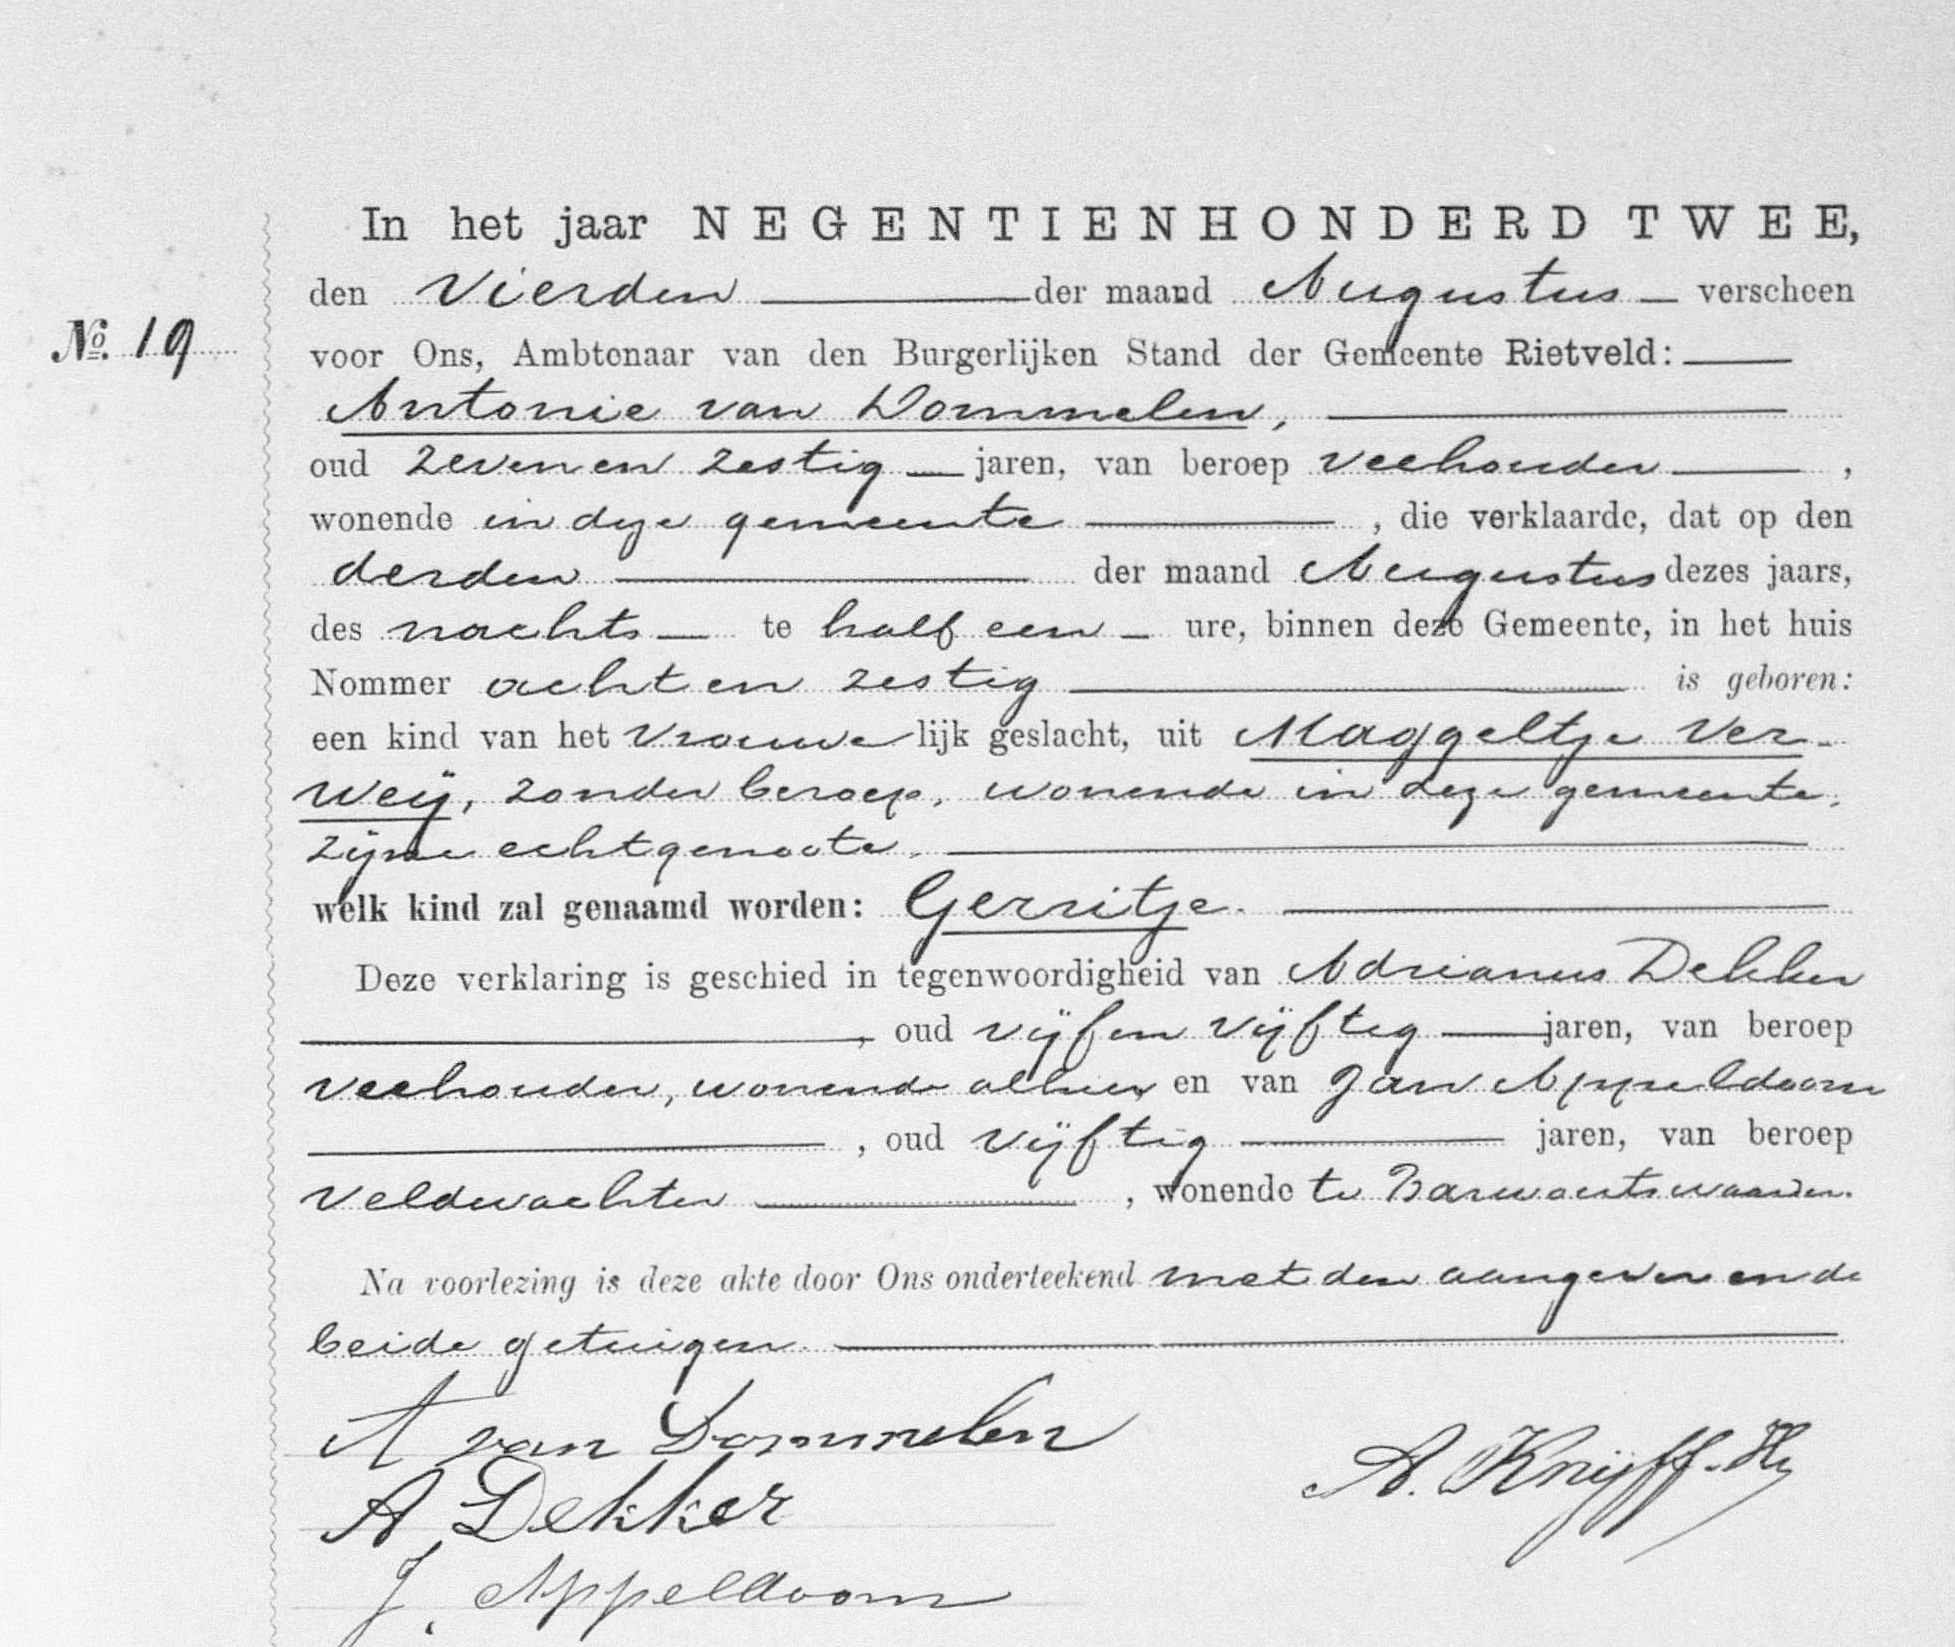 In het jaar NEGENTIENHONDERD TWEE,
den Vierden der maand Augustus verscheen
No. 19
voor Ons, Ambtenaar van den Burgerlijken Stand der Gemeente Rietveld:
Antonie van Dommelen,
oud zeven en zestig jaren, van beroep veehouder,
wonende in deze gemeente, die verklaarde, dat op den
derden der maand Augustus dezes jaars,
des nachts te half een ure, binnen deze Gemeente, in het huis
Nommer acht en zestig is geboren:
een kind van het vrouwelijk geslacht, uit Maggeltje Ver-
weij, zonder beroep, wonende in deze gemeente,
zijne echtgenoote.
welk kind zal genaamd worden: Gerritje.
Deze verklaring is geschied in tegenwoordigheid van Adrianus Dekker
, oud vijf en vijftig jaren, van beroep
veehouder, wonende alhier en van Jan Appeldoorn
, oud vijftig jaren, van beroep
veldwachter, wonende te Barwoutswaarder.
Na voorlezing is deze akte door Ons onderteekend met den aangever en de
beide getuigen.
A van Dommelen
A. Knijff.
A Dekker
J. Appeldoorn